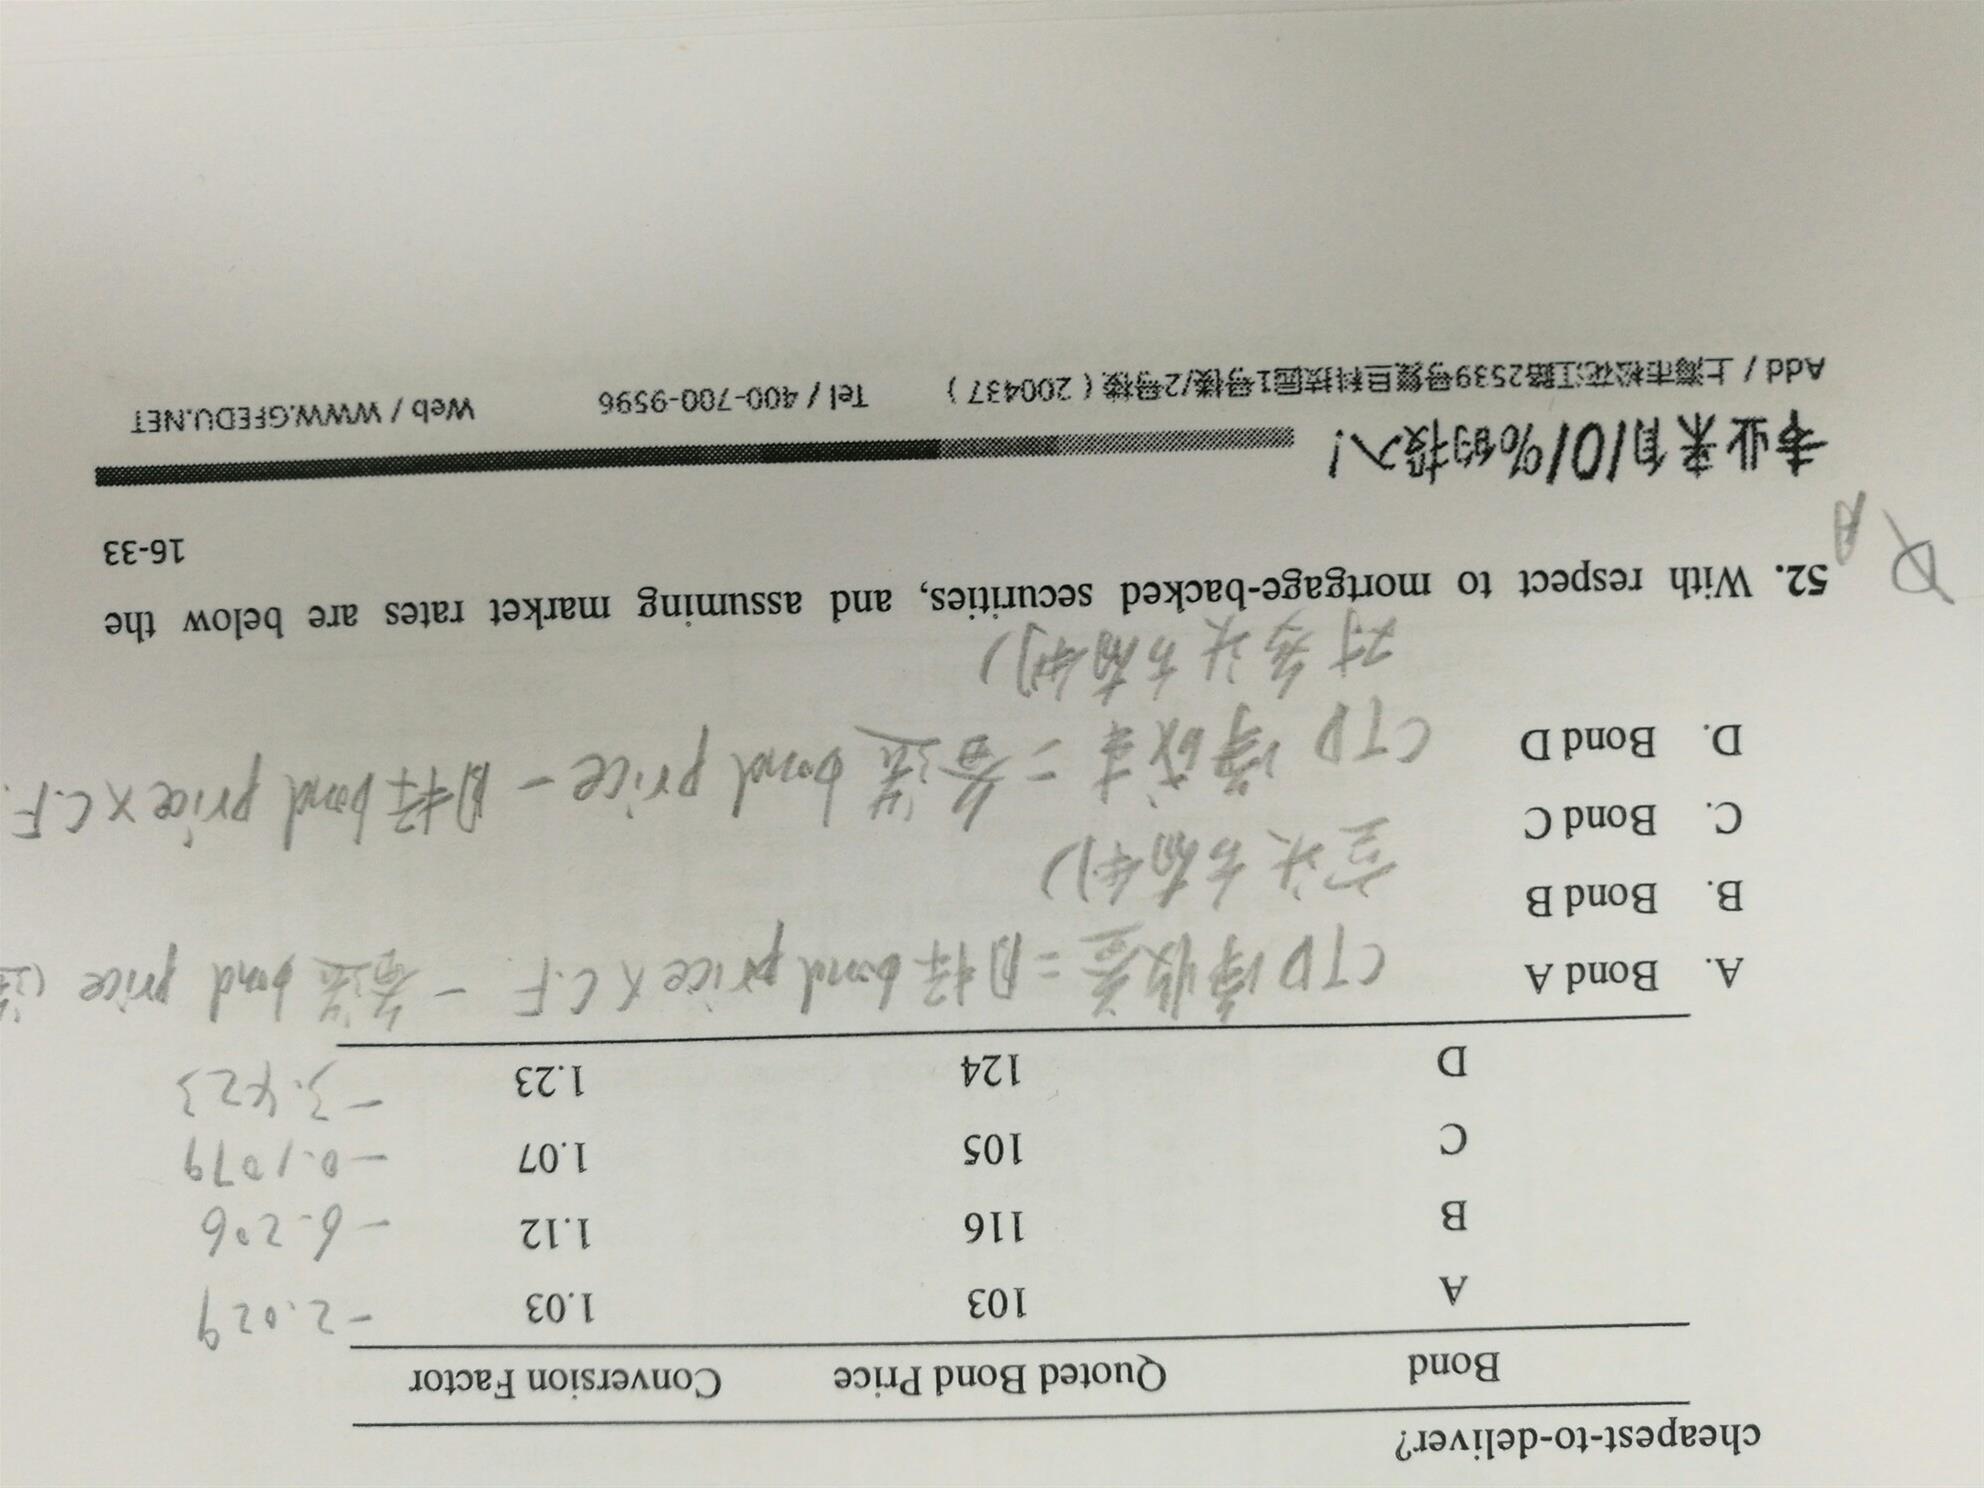 cheapest-to-deliver?
Bond Quoted Bond Price Conversion Factor
A 103 1.03 -2.029
B 116 1.12 -6.206
C 105 1.07 -0.1079
D 124 1.23 -3.423
A. Bond A CTD净收益=期货bond price×C.F - 备选bond price (
B. Bond B 空头方有利)
C. Bond C
D. Bond D CTD净成本=备选bond price - 期货bond price×C.F.
对多头方有利)
52. With respect to mortgage-backed securities, and assuming market rates are below the
16-33
专业来自101%的投入!
Add / 上海市松花江路2539号复旦科技园1号楼/2号楼（200437） Tel / 400-700-9596 Web / WWW.GFEDU.NET